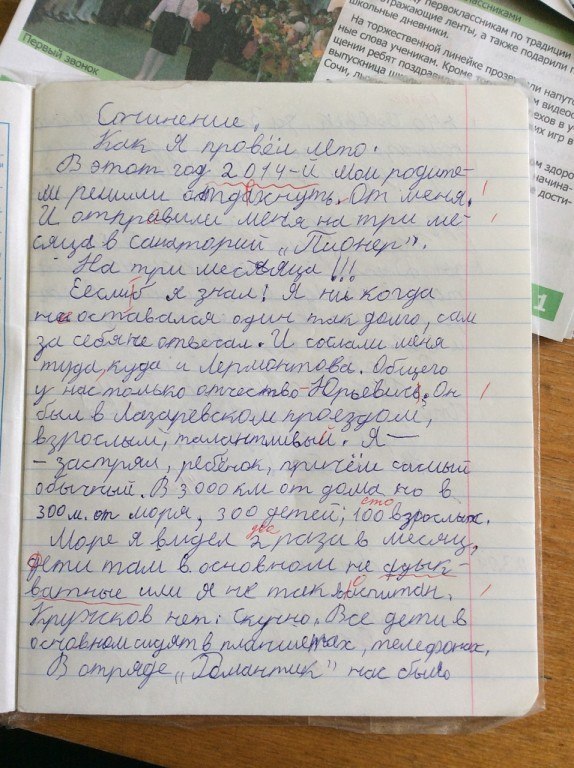 Первый звонок
классниками
первоклассникам по традиции
отражающие ленты, а также подарили
школьные дневники.
На торжественной линейке прозвучали напутс
ные слова ученикам. Кроме
щении ребят поздравил
выпускница
Сочи,
1
Сочинение.
Как Я провёл лето.
В этот год 2014-й мои родите-
ли решили отдахнуть. От меня.
И отправили меня на три ме-
сяца в санаторий „Пионер".
На три месяца!!!
Еслиб я знал! Я ни когда
не оставался один так долго, сам
за себя не отвечал. И сослали меня
туда, куда и Лермонтова. Общего
у нас только отчество-Юрьевич. Он
был в Лазаревском проездом,
взрослый, талантливый. Я—
- застрял, ребёнок, причём самый
обычный. В 3000км от дома но в
300м. от моря, 300 детей; 100 взрослых.
сто
Море я видел 2 раза в месяц,
два
дети там в основном не адык-
ватные или я не так воспитан.
Кружков нет: Скучно. Все дети в
основном сидят в планшетах, телефонах,
В отряде „Романтик" нас было